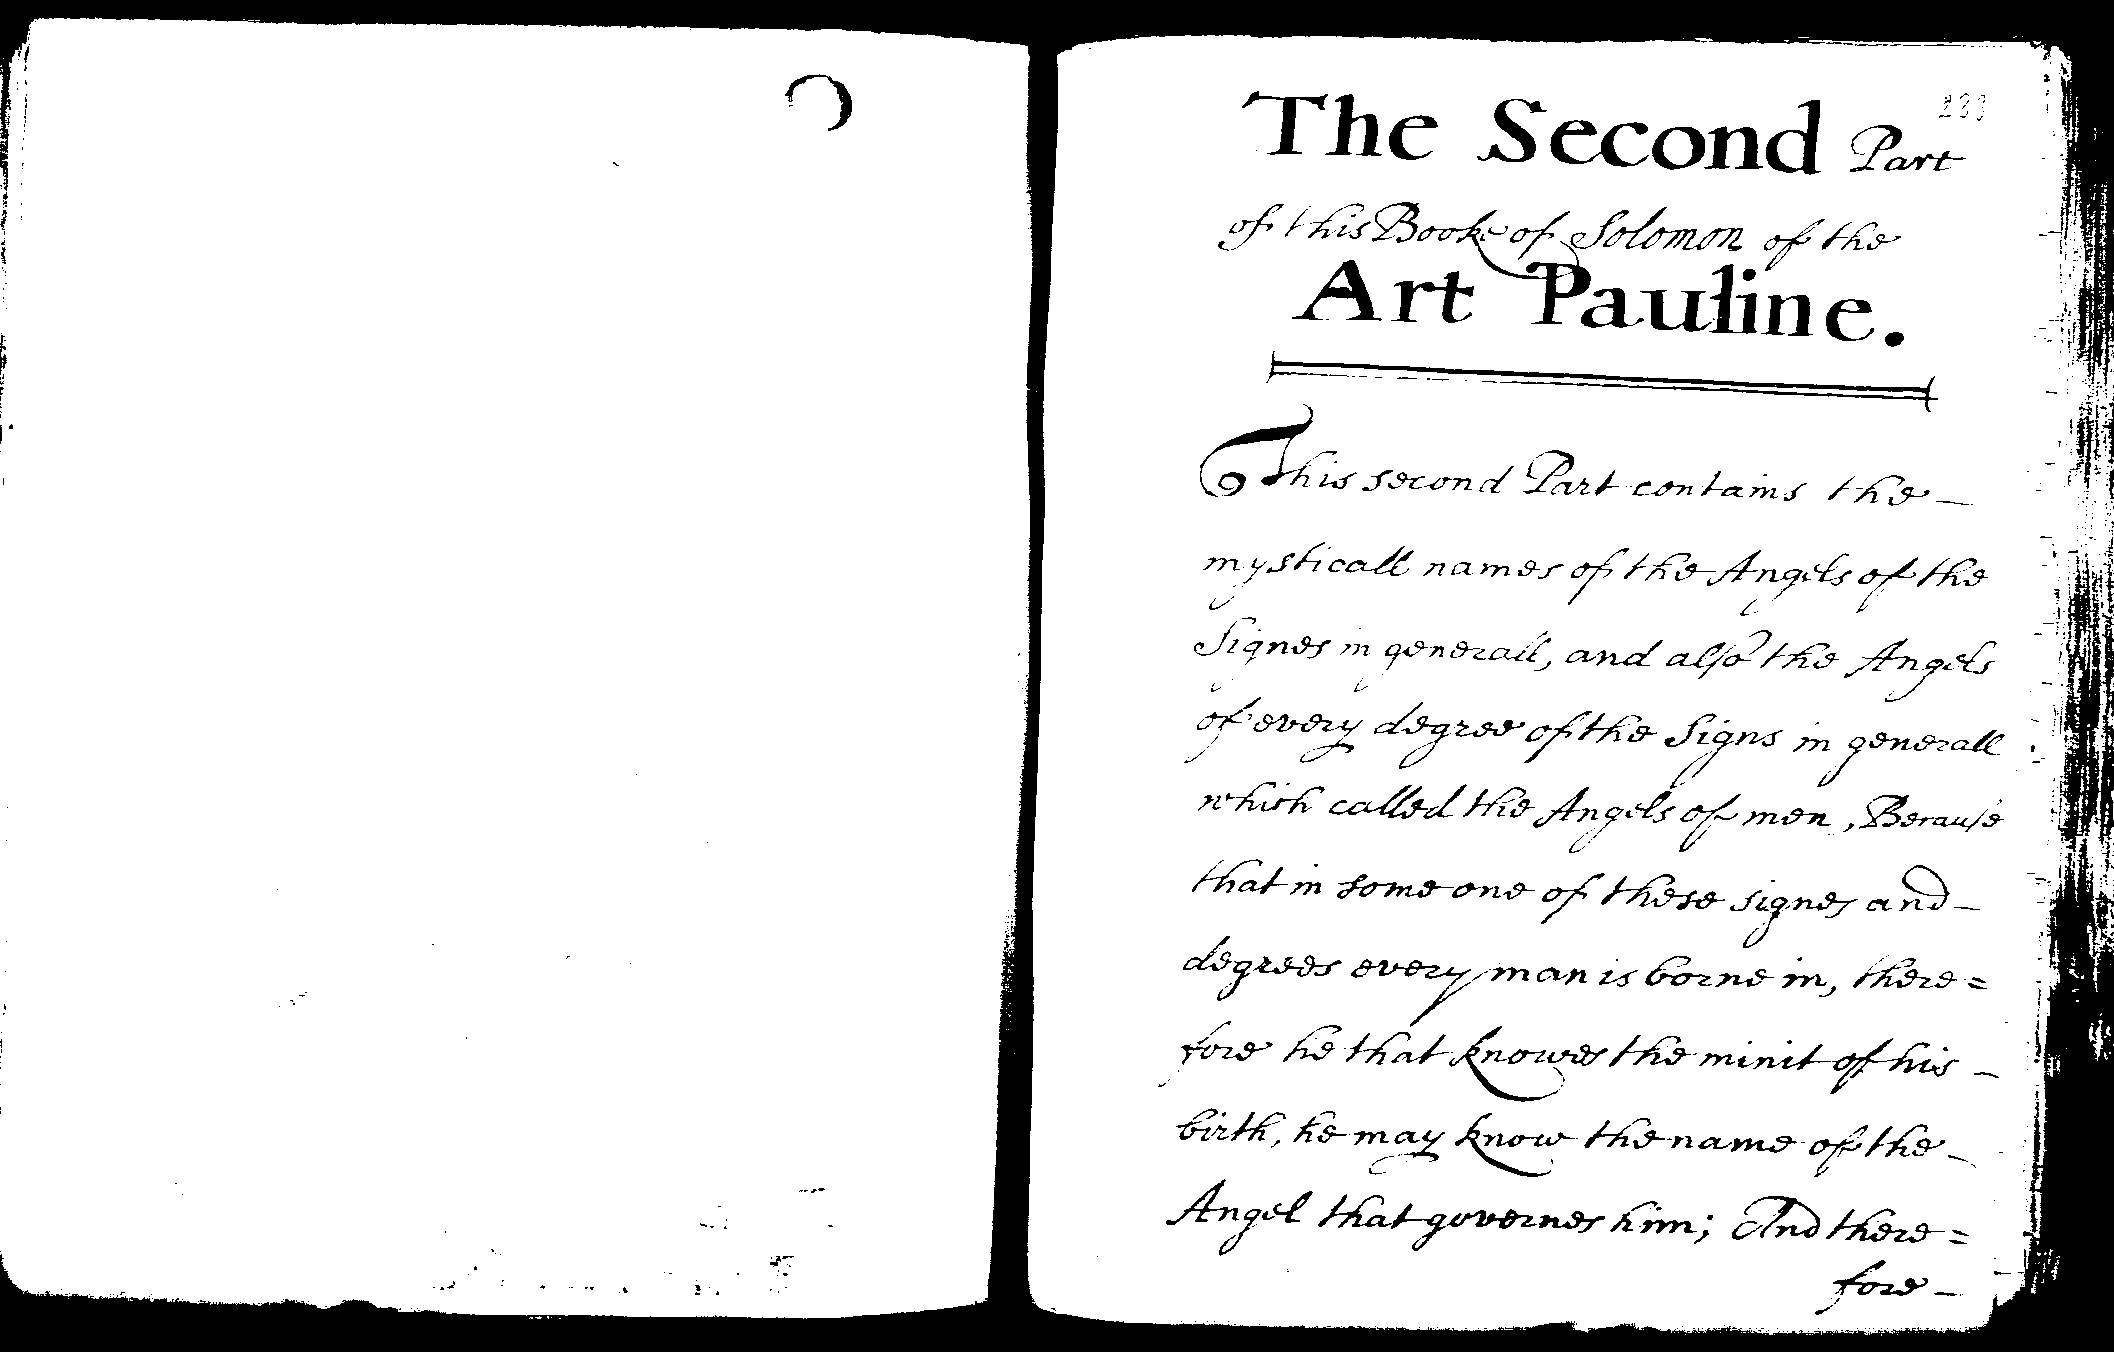 The Second Part
of this Booke of Solomon of the
Art Pauline.
This second Part contains the —
mysticall names of the Angels of the
Signes in generall, and also the Angels
of every degree of the Signs in generall
which called the Angels of men, Because
that in some one of these signes and —
degrees every man is borne in, there=
fore he that knowes the minit of his —
birth, he may know the name of the —
Angel that governes him; And there=
fore —